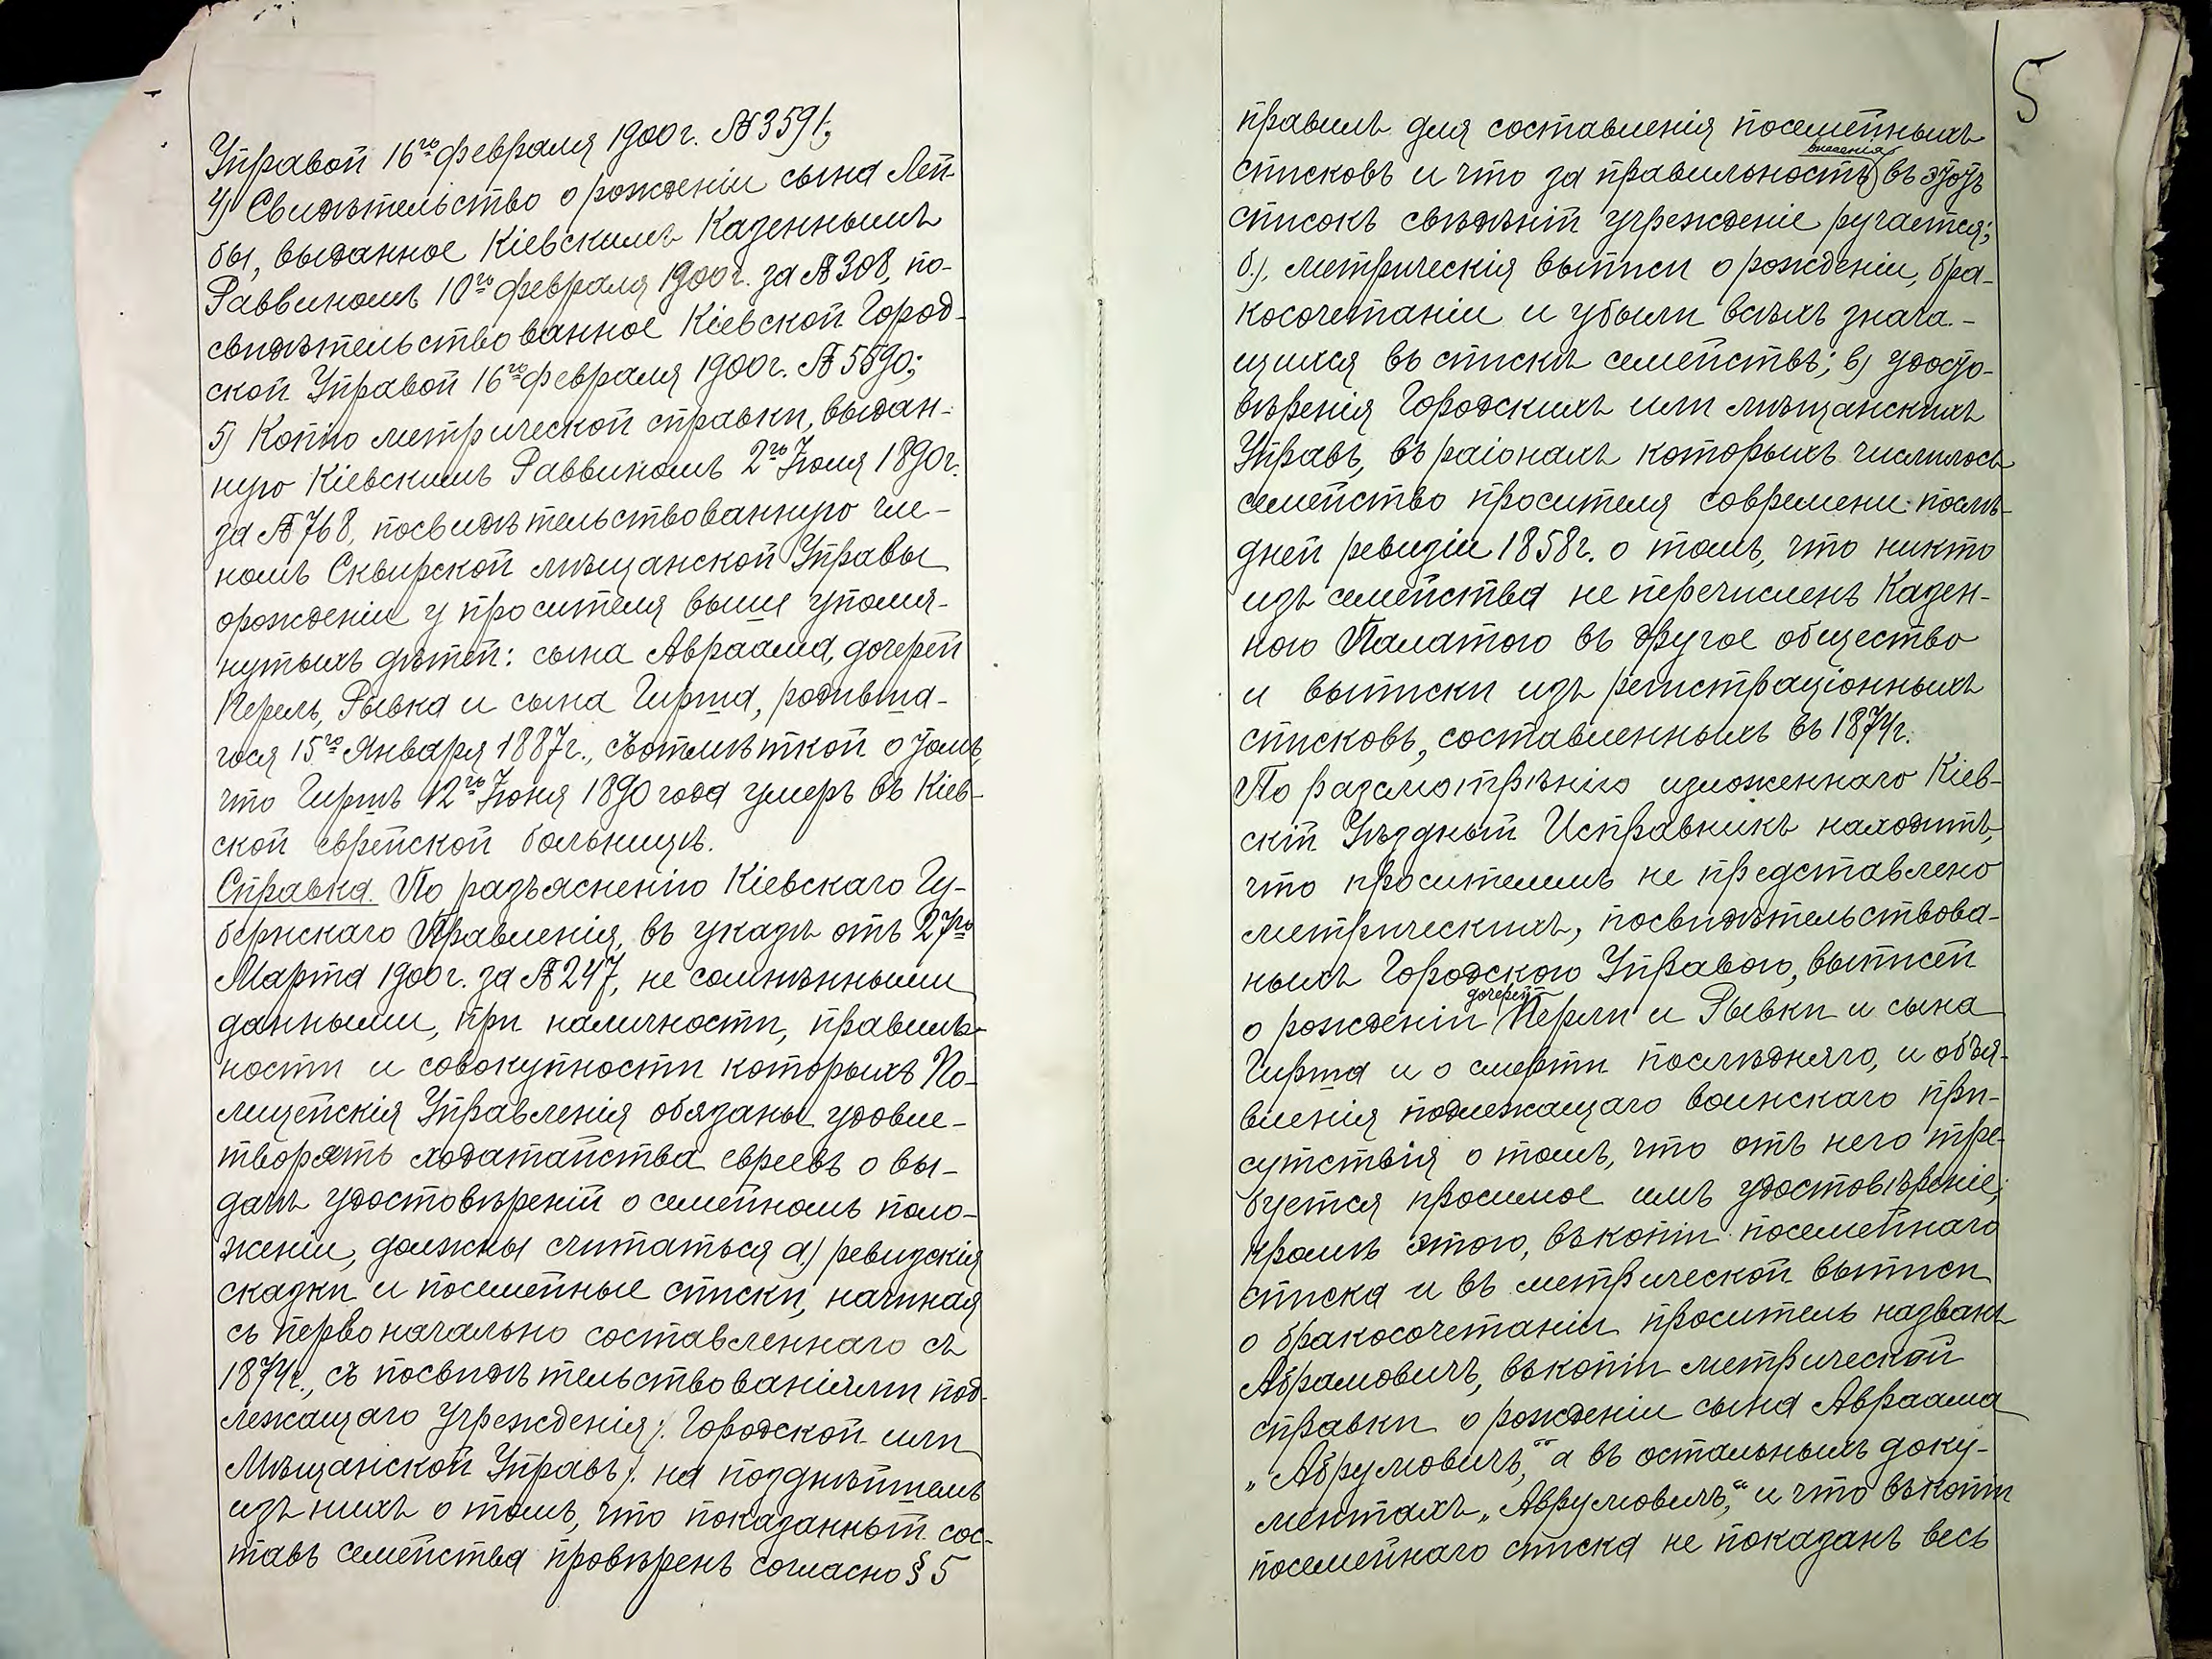 Управой 16го февраля 1900 г. № 3591;
4) Свидѣтельство о рожденіи сына Лей-
бы, выданное Кіевскимъ Казеннымъ
Раввиномъ 10го февраля 1900 г. за № 308, по-
свидѣтельствованное Кіевской Город-
ской Управой 16го февраля 1900 г. № 5590;
5) Копію метрической справки, выдан-
ную Кіевскимъ Раввиномъ 2го Іюля 1890 г.
за № 768, посвидѣтельствованную чле-
номъ Сквирской мѣщанской Управы
орожденіи у просителя выше упомя-
нутыхъ дѣтей: сына Авраама, дочерей
Перель, Рывка и сына Гирша, родивша-
гося 15го Января 1887 г., съотмѣткой о томъ,
что Гиршъ 12го Іюня 1890 года умеръ въ Кіев-
ской еврейской больницѣ.
Справка. По разъясненію Кіевскаго Гу-
бернскаго Правленія, въ указѣ отъ 27го
Марта 1900 г. за № 247, не сомнѣнными
данными, при наличности, правиль-
ности и совокупности которыхъ По-
лицейскія Управленія обязаны удовле-
творять ходатайства евреевъ о вы-
дачѣ удостовѣреній о семейномъ поло-
женіи, должны считаться а) ревизскія
сказки и посемейные списки, начиная
съ первоначально составленнаго съ
1874 г., съ посвидѣтельствованіями под-
лежащаго учрежденія /: Городской или
Мѣщанской Управъ :/ на позднѣйшемъ
изъ нихъ о томъ, что показанный сос-
тавъ семейства провѣренъ согласно § 5
5
правилъ для составленія посемейныхъ
внесенія
списковъ и что за правильность въ этотъ
списокъ свѣдѣній учрежденіе ручается;
б), метрическія выписи о рожденіи, бра-
косочетаніи и убыли всѣхъ знача-
щихся въ спискѣ семействъ; в) удосто-
вѣренія Городскихъ или мѣщанскихъ
Управъ, въ раіонахъ которыхъ числилось
семейство просителя современи послѣ-
дней ревизіи 1858 г. о томъ, что никто
изъ семейства не перечисленъ Казен-
ною Палатою въ другое общество
и выписки изъ регистраціонныхъ
списковъ, составленныхъ въ 1874 г.
По разсмотрѣнію изложеннаго Кіев-
скій Уѣздный Исправникъ находитъ,
что просителемъ не представлено
метрическихъ, посвидѣтельствова-
ныхъ Городскою Управою, выписей
дочерей
о рожденіи Перли и Рывки и сына
Гирша и о смерти послѣдняго, и объя-
вленія подлежащаго воинскаго при-
сутствія о томъ, что отъ него тре-
буется просимое имъ удостовѣреніе,
кромѣ этого, въкопіи посемейнаго
списка и въ метрической выписи
о бракосочетаніи проситель названъ
Абрамовичъ, въкопіи метрической
справки о рожденіи сына Авраама
„Абрумовичъ,“ а въ остальныхъ доку-
ментахъ „Аврумовичъ,“ и что въкопіи
посемейнаго списка не показанъ весь